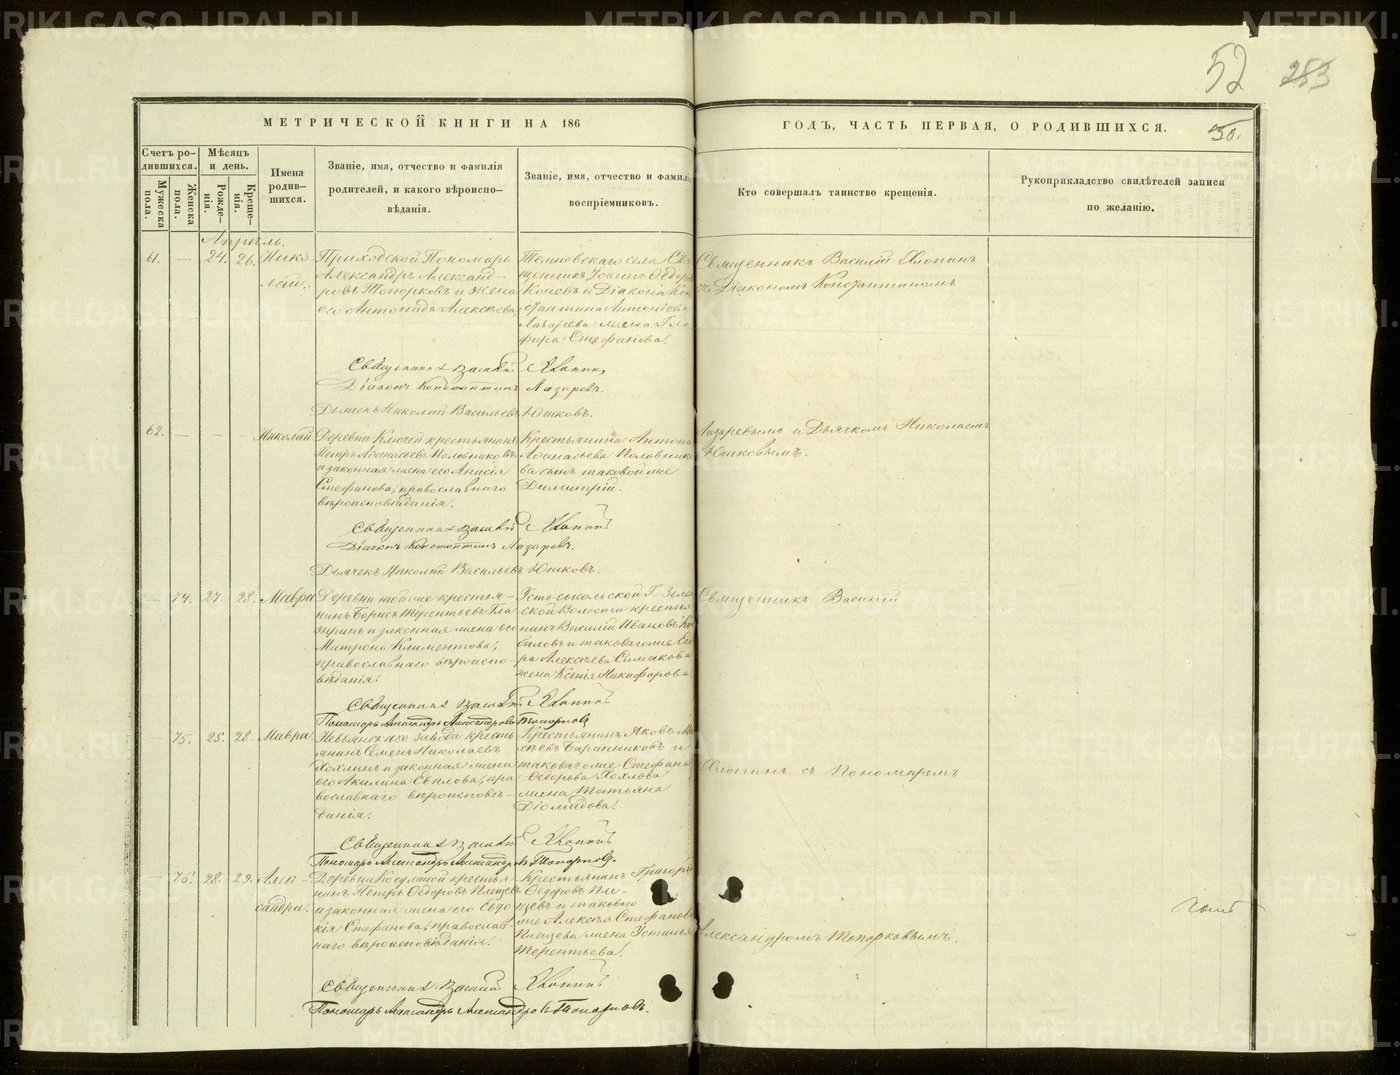 52 283
МЕТРИЧЕСКОЙ КНИГИ НА 186
ГОДЪ, ЧАСТЬ ПЕРВАЯ, О РОДИВШИХСЯ.
50.
Счетъ родившихся.
Мѣсяцъ и день.
Мужеска пола.
Женска пола.
Рожденія.
Крещенія.
Имена родившихся.
Званіе, имя, отчество и фамилія
родителей, и какого вѣроиспо-
вѣданія.
Званіе, имя, отчество и фамилія
воспріемниковъ.
Кто совершалъ таинство крещенія.
Рукоприкладство свидѣтелей записи
по желанію.
Апрѣль.
61. — 24. 26. Нико-
лай.
Приходской Пономарь
Александръ Александ-
ровъ Топорковъ и жена
его Антонида Алексѣева,
села Свя-
щенникъ Іоаннъ Ѳедоровъ
Коневъ и Діакона Кон-
стантина Антоніева
Лазарева жена Гла-
фира Стефанова.
Священникъ Василій Хлопинъ
съ Діакономъ Константиномъ
Священникъ Василій Хлопинъ
Діаконъ Константинъ Лазаревъ.
Дьячекъ Николай Васильевъ Юшковъ.
62. — — Николай
Деревни Ключей крестьянинъ
Петръ Аѳанасьевъ Половниковъ
и законная жена его Анисія
Стефанова, православнаго
вѣроисповѣданія.
Крестьянина Антона
Аѳанасьева Половнико-
ва сынъ таковой же
Димитрій.
Лазаревымъ и Дьячкомъ Николаемъ
Юшковымъ.
Священникъ Василій Хлопинъ
Діаконъ Константинъ Лазаревъ.
Дьячекъ Николай Васильевъ Юшковъ.
— 74. 27. 28. Мавра
Деревни той же крестья-
нинъ Борисъ Терентьевъ
и законная жена его
Матрона Климентова,
православнаго вѣроиспо-
вѣданія.
Волости крестья-
нинъ Василій Ивановъ
и таковаго же
Алексѣева Симакова
жена Ксенія Никифорова.
Священникъ Василій
Священникъ Василій Хлопинъ
Пономарь Александръ Александровъ Топорковъ
— 75. 25. 28. Мавра.
Невьянскаго завода кресть-
янинъ Семенъ Николаевъ
Хохлинъ и законная жена
его Акилина Савлова, пра-
вославнаго вѣроисповѣ-
данія.
Крестьянинъ Яковъ
Баранниковъ и
таковаго же Стефана
Ѳедорова Хохлова
жена Татьяна
Діомидова.
Хлопинъ съ Пономаремъ
Священникъ Василій Хлопинъ
Пономарь Александръ Александровъ Топорковъ.
— 76. 28. 29. Алек-
сандра.
Деревни крестья-
нинъ Петръ Ѳедоровъ Плещевъ
и законная жена его Евдо-
кія Стефанова, православ-
наго вѣроисповѣданія.
Крестьянинъ Григорій
Ѳедоровъ Пле-
щевъ и таковаго
же Алексѣя Стефанова
Плещева жена Устинья
Терентьева.
Александромъ Топорковымъ.
Священникъ Василій Хлопинъ
Пономарь Александръ Александровъ Топорковъ.
METRIKI.GASO-URAL.RU